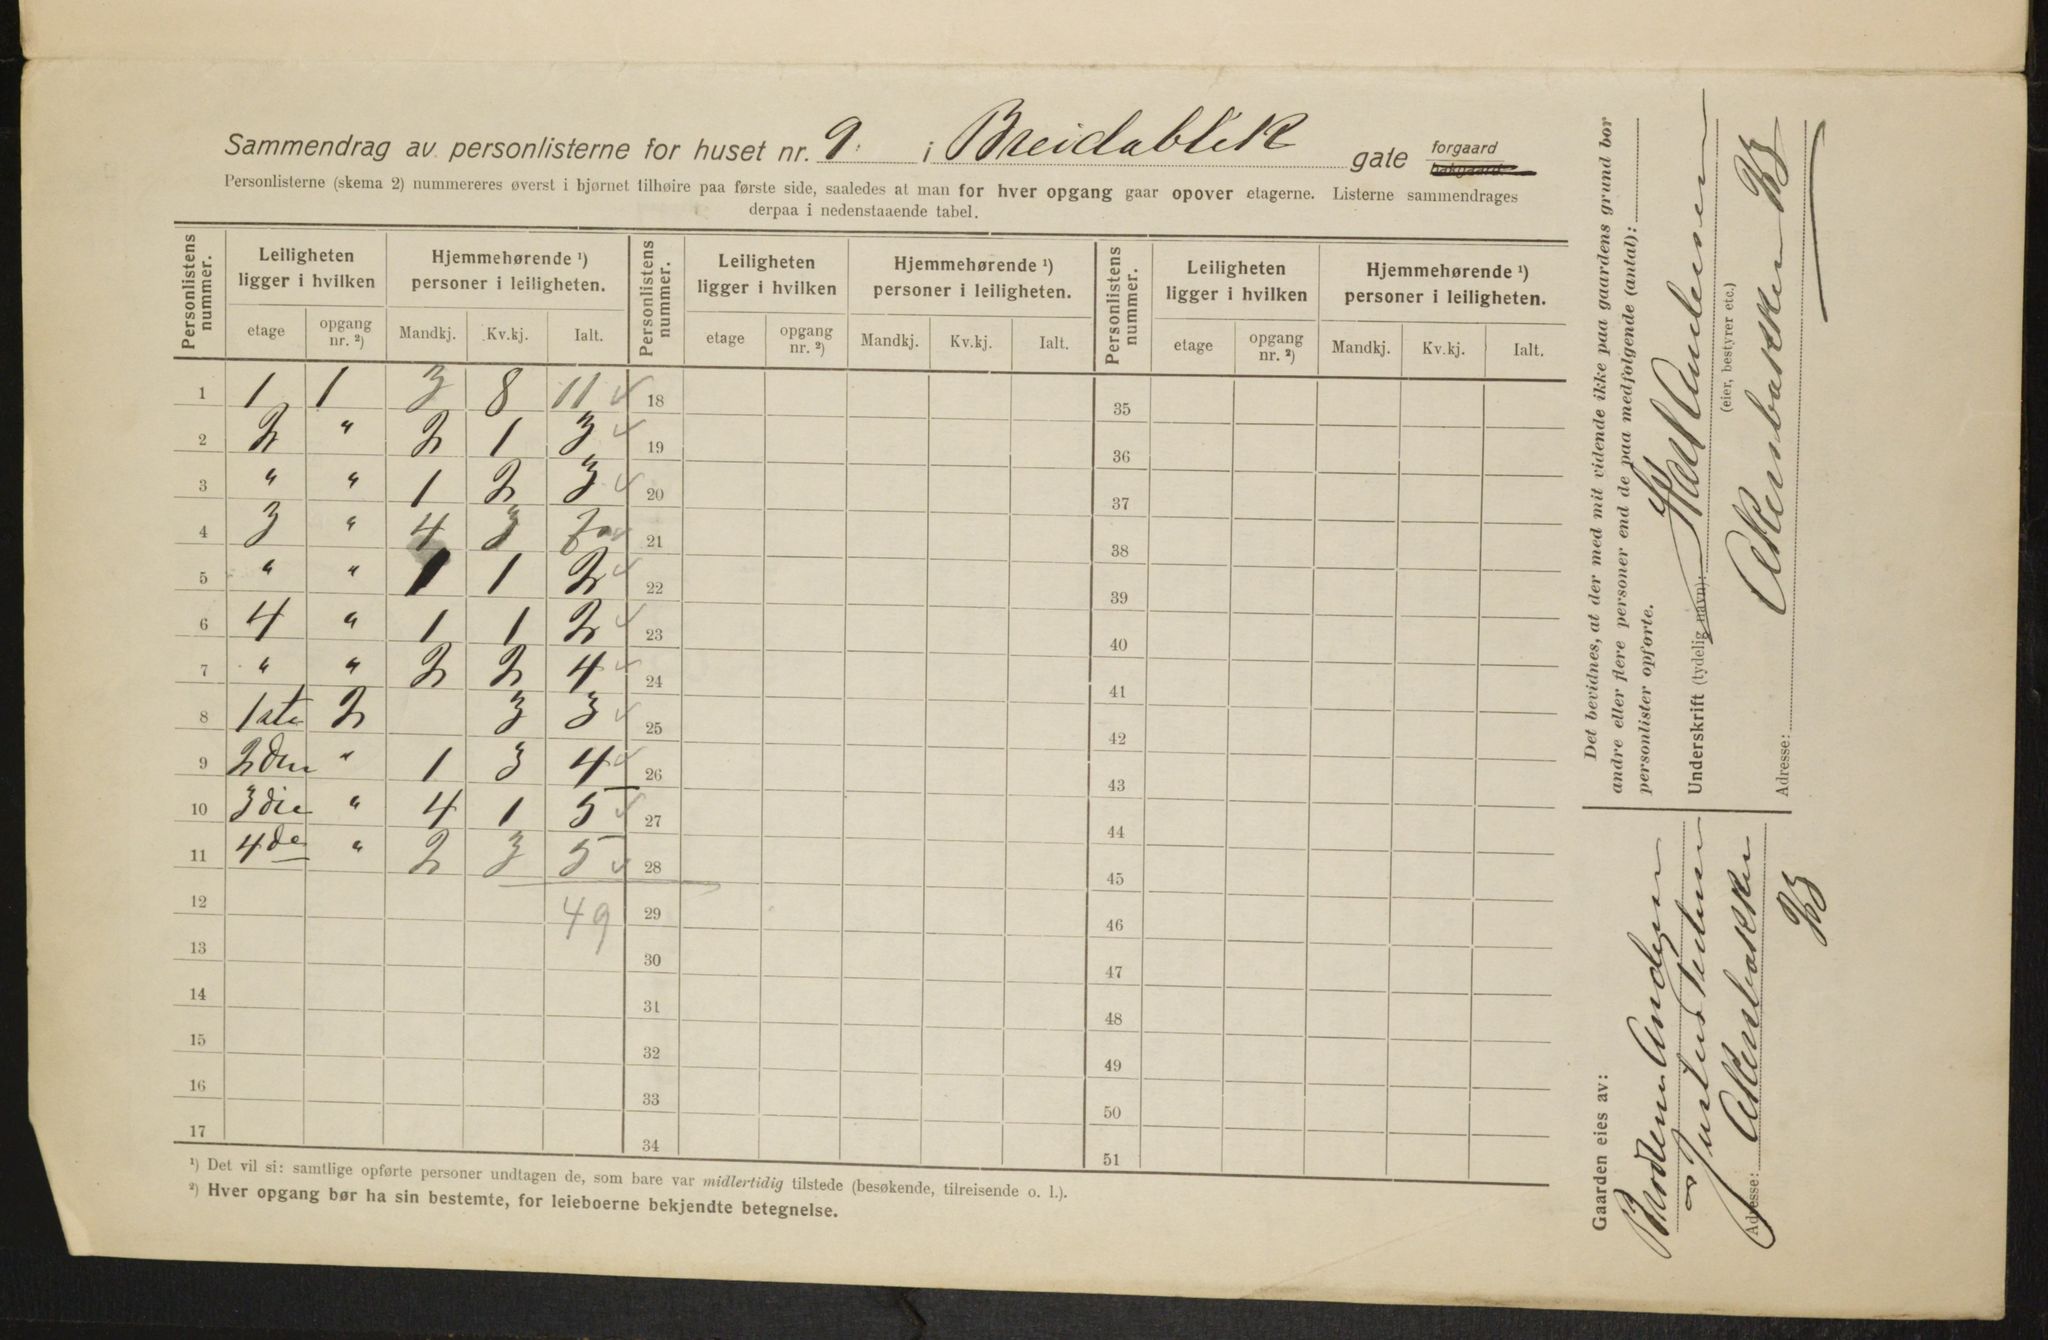 Sammendrag av personlisterne for huset nr. 9. i Breidablik gate forgaard bakgaard.
Personlisterne (skema 2) nummereres øverst i hjørnet tilhøire paa første side, saaledes at man for hver opgang gaar opover etagerne. Listerne sammendrages
derpaa i nedenstaaende tabel.
Personlistens nummer. Leiligheten ligger i hvilken Hjemmehørende ¹) personer i leiligheten. Personlistens nummer. Leiligheten ligger i hvilken Hjemmehørende ¹) personer i leiligheten. Personlistens nummer. Leiligheten ligger i hvilken Hjemmehørende ¹) personer i leiligheten.
etage opgang nr. ²) Mandkj. Kv.kj. Ialt. etage opgang nr. ²) Mandkj. Kv.kj. Ialt. etage opgang nr. ²) Mandkj. Kv.kj. Ialt.
1 1 1 3 8 11 18 35
2 2 " 2 1 3 19 36
3 " " 1 2 3 20 37
4 3 " 4 3 7 21 38
5 " " 1 1 2 22 39
6 4 " 1 1 2 23 40
7 " " 2 2 4 24 41
8 1ste 2 3 3 25 42
9 2den " 1 3 4 26 43
10 3die " 4 1 5 27 44
11 4de " 2 3 5 28 45
12 49 29 46
13 30 47
14 31 48
15 32 49
16 33 50
17 34 51
¹) Det vil si: samtlige opførte personer undtagen de, som bare var midlertidig tilstede (besøkende, tilreisende o. l.).
²) Hver opgang bør ha sin bestemte, for leieboerne bekjendte betegnelse.
Det bevidnes, at der med mit vidende ikke paa gaardens grund bor
andre eller flere personer end de paa medfølgende (antal):
personlister opførte.
Underskrift (tydelig navn):
(eier, bestyrer etc.)
Adresse: Akersbakken 33
Gaarden eies av:
Brødrene Andersen
Adresse: Akersbakken
33